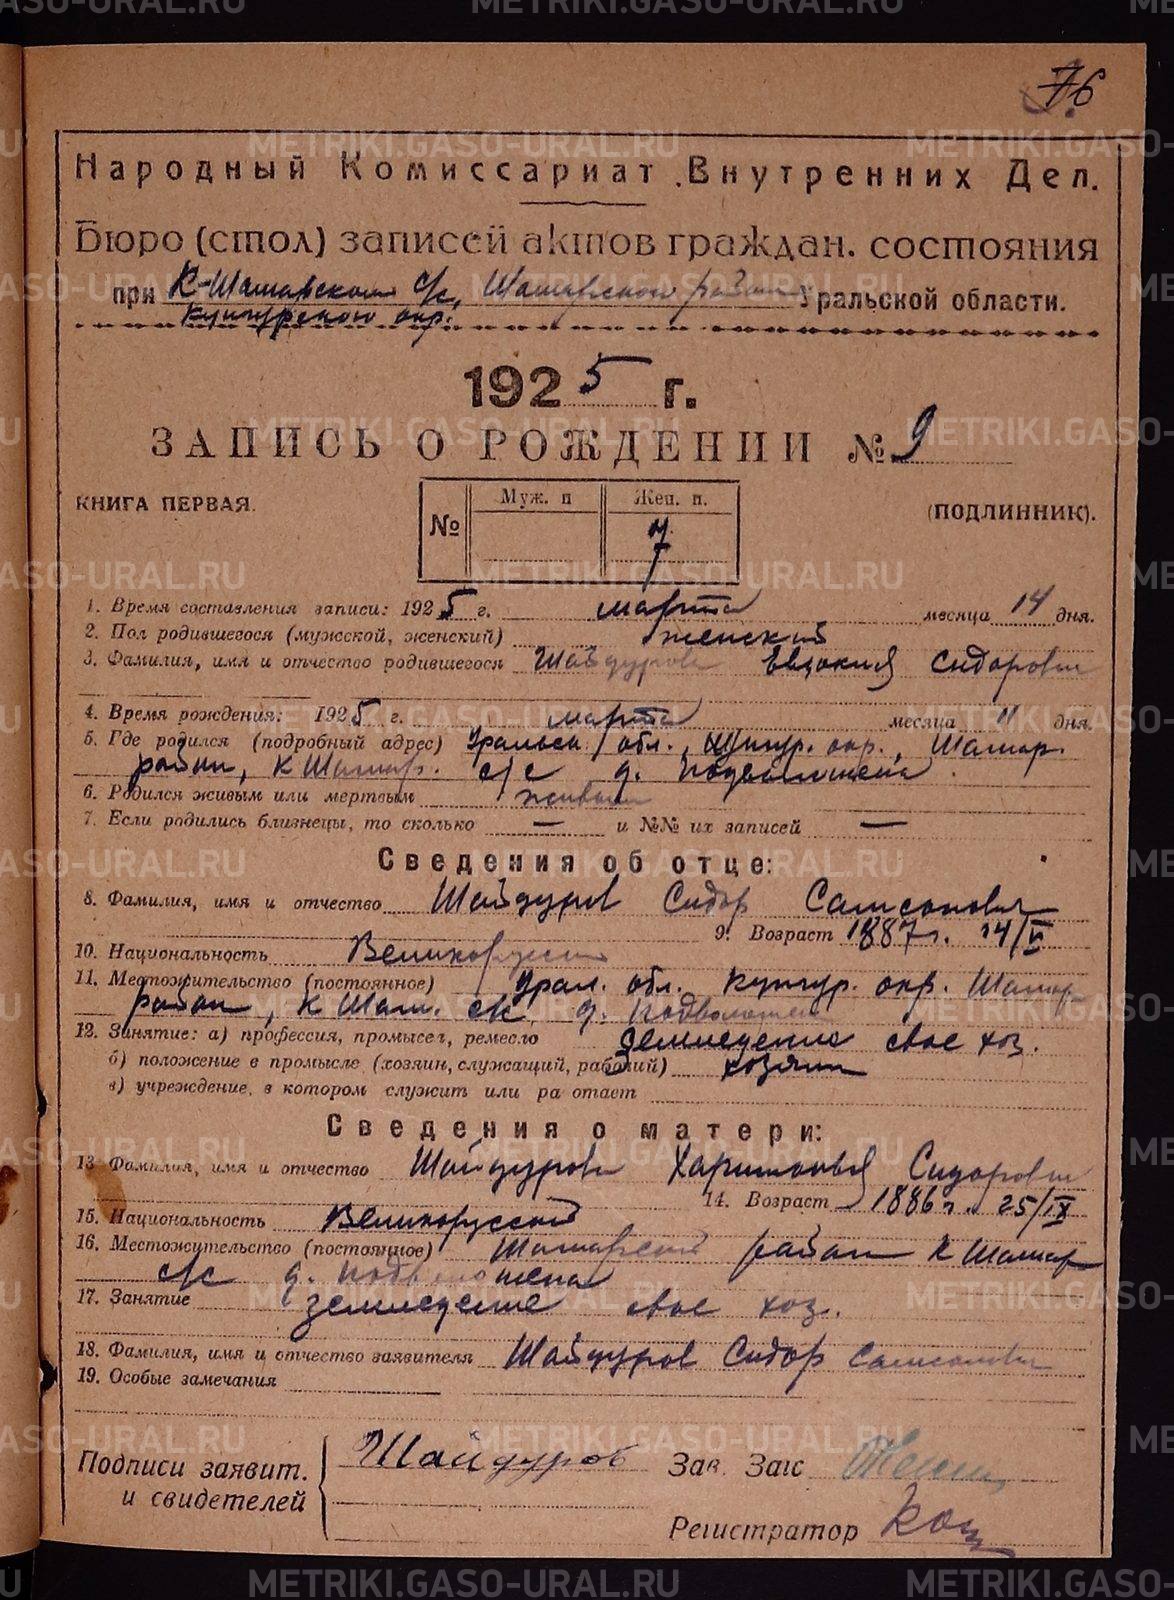 76
Народный Комиссариат Внутренних Дел.
Бюро (стол) записей актов граждан. состояния
при К-Шамарском с/с, Шамарского района Уральской области.
Кунгурского окр.
1925 г.
ЗАПИСЬ О РОЖДЕНИИ № 9
КНИГА ПЕРВАЯ.
(ПОДЛИННИК).
№ Муж. п Жен. п.
7
1. Время составления записи: 1925 г. марта месяца 14 дня.
2. Пол родившегося (мужской, женский) женский
3. Фамилия, имя и отчество родившегося Шайдурова Евдокия Сидоровна
4. Время рождения: 1925 г. марта месяца 11 дня.
5. Где родился (подробный адрес) Уральск. обл., Кунгур. окр., Шамар.
район, К Шамар. с/с д. Подволошена
6. Родился живым или мертвым живым
7. Если родились близнецы, то сколько — и №№ их записей —
Сведения об отце:
8. Фамилия, имя и отчество Шайдуров Сидор Самсонович
9. Возраст 1887 г. 14/V
10. Национальность Великорусс
11. Местожительство (постоянное) Урал. обл. Кунгур. окр. Шамар
район, К Шам. с/с д. Подволошена
12. Занятие: а) профессия, промысел, ремесло земледелие свое хоз.
б) положение в промысле (хозяин, служащий, рабочий) хозяин
в) учреждение, в котором служит или ра отает
Сведения о матери:
13 Фамилия, имя и отчество Шайдурова Харитонья Сидоровна
14. Возраст 1886 г. 25/IX
15. Национальность Великорусской
16. Местожительство (постоянное) Шамарский район К Шамар
с/с д. Подволошена
17. Занятие земледелие свое хоз.
18. Фамилия, имя и отчество заявителя Шайдуров Сидор Самсонович
19. Особые замечания
Подписи заявит. и свидетелей
Шайдуров
Зав. Загс
Регистратор
METRIKI.GASO-URAL.RU